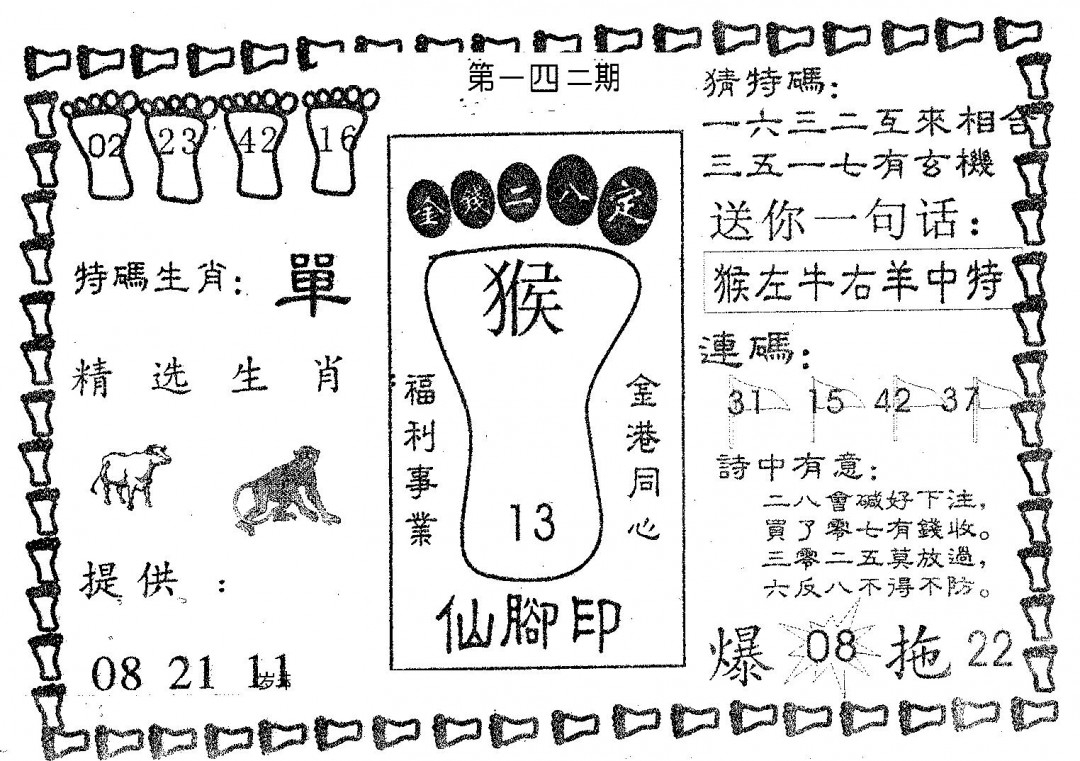 第一四二期
02 23 42 16
特碼生肖：單
精选生肖
提供：
08 21 11
金錢二八定
猴
福利事業
金港同心
13
仙腳印
猜特碼：
一六三二互來相合
三五一七有玄機
送你一句话：
猴左牛右羊中特
連碼：
31 15 42 37
詩中有意：
二八會碱好下注，
買了零七有錢收。
三零二五莫放過，
六反八不得不防。
爆 08 拖 22